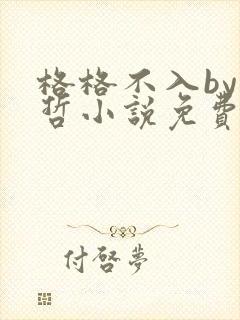 格格不入by
哲小說免費
付啓夢